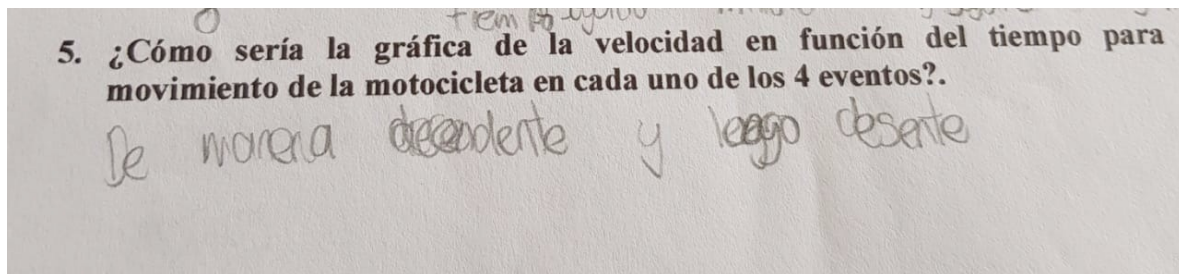 tiempo
5. ¿Cómo sería la gráfica de la velocidad en función del tiempo para
movimiento de la motocicleta en cada uno de los 4 eventos?.
De manera y desente